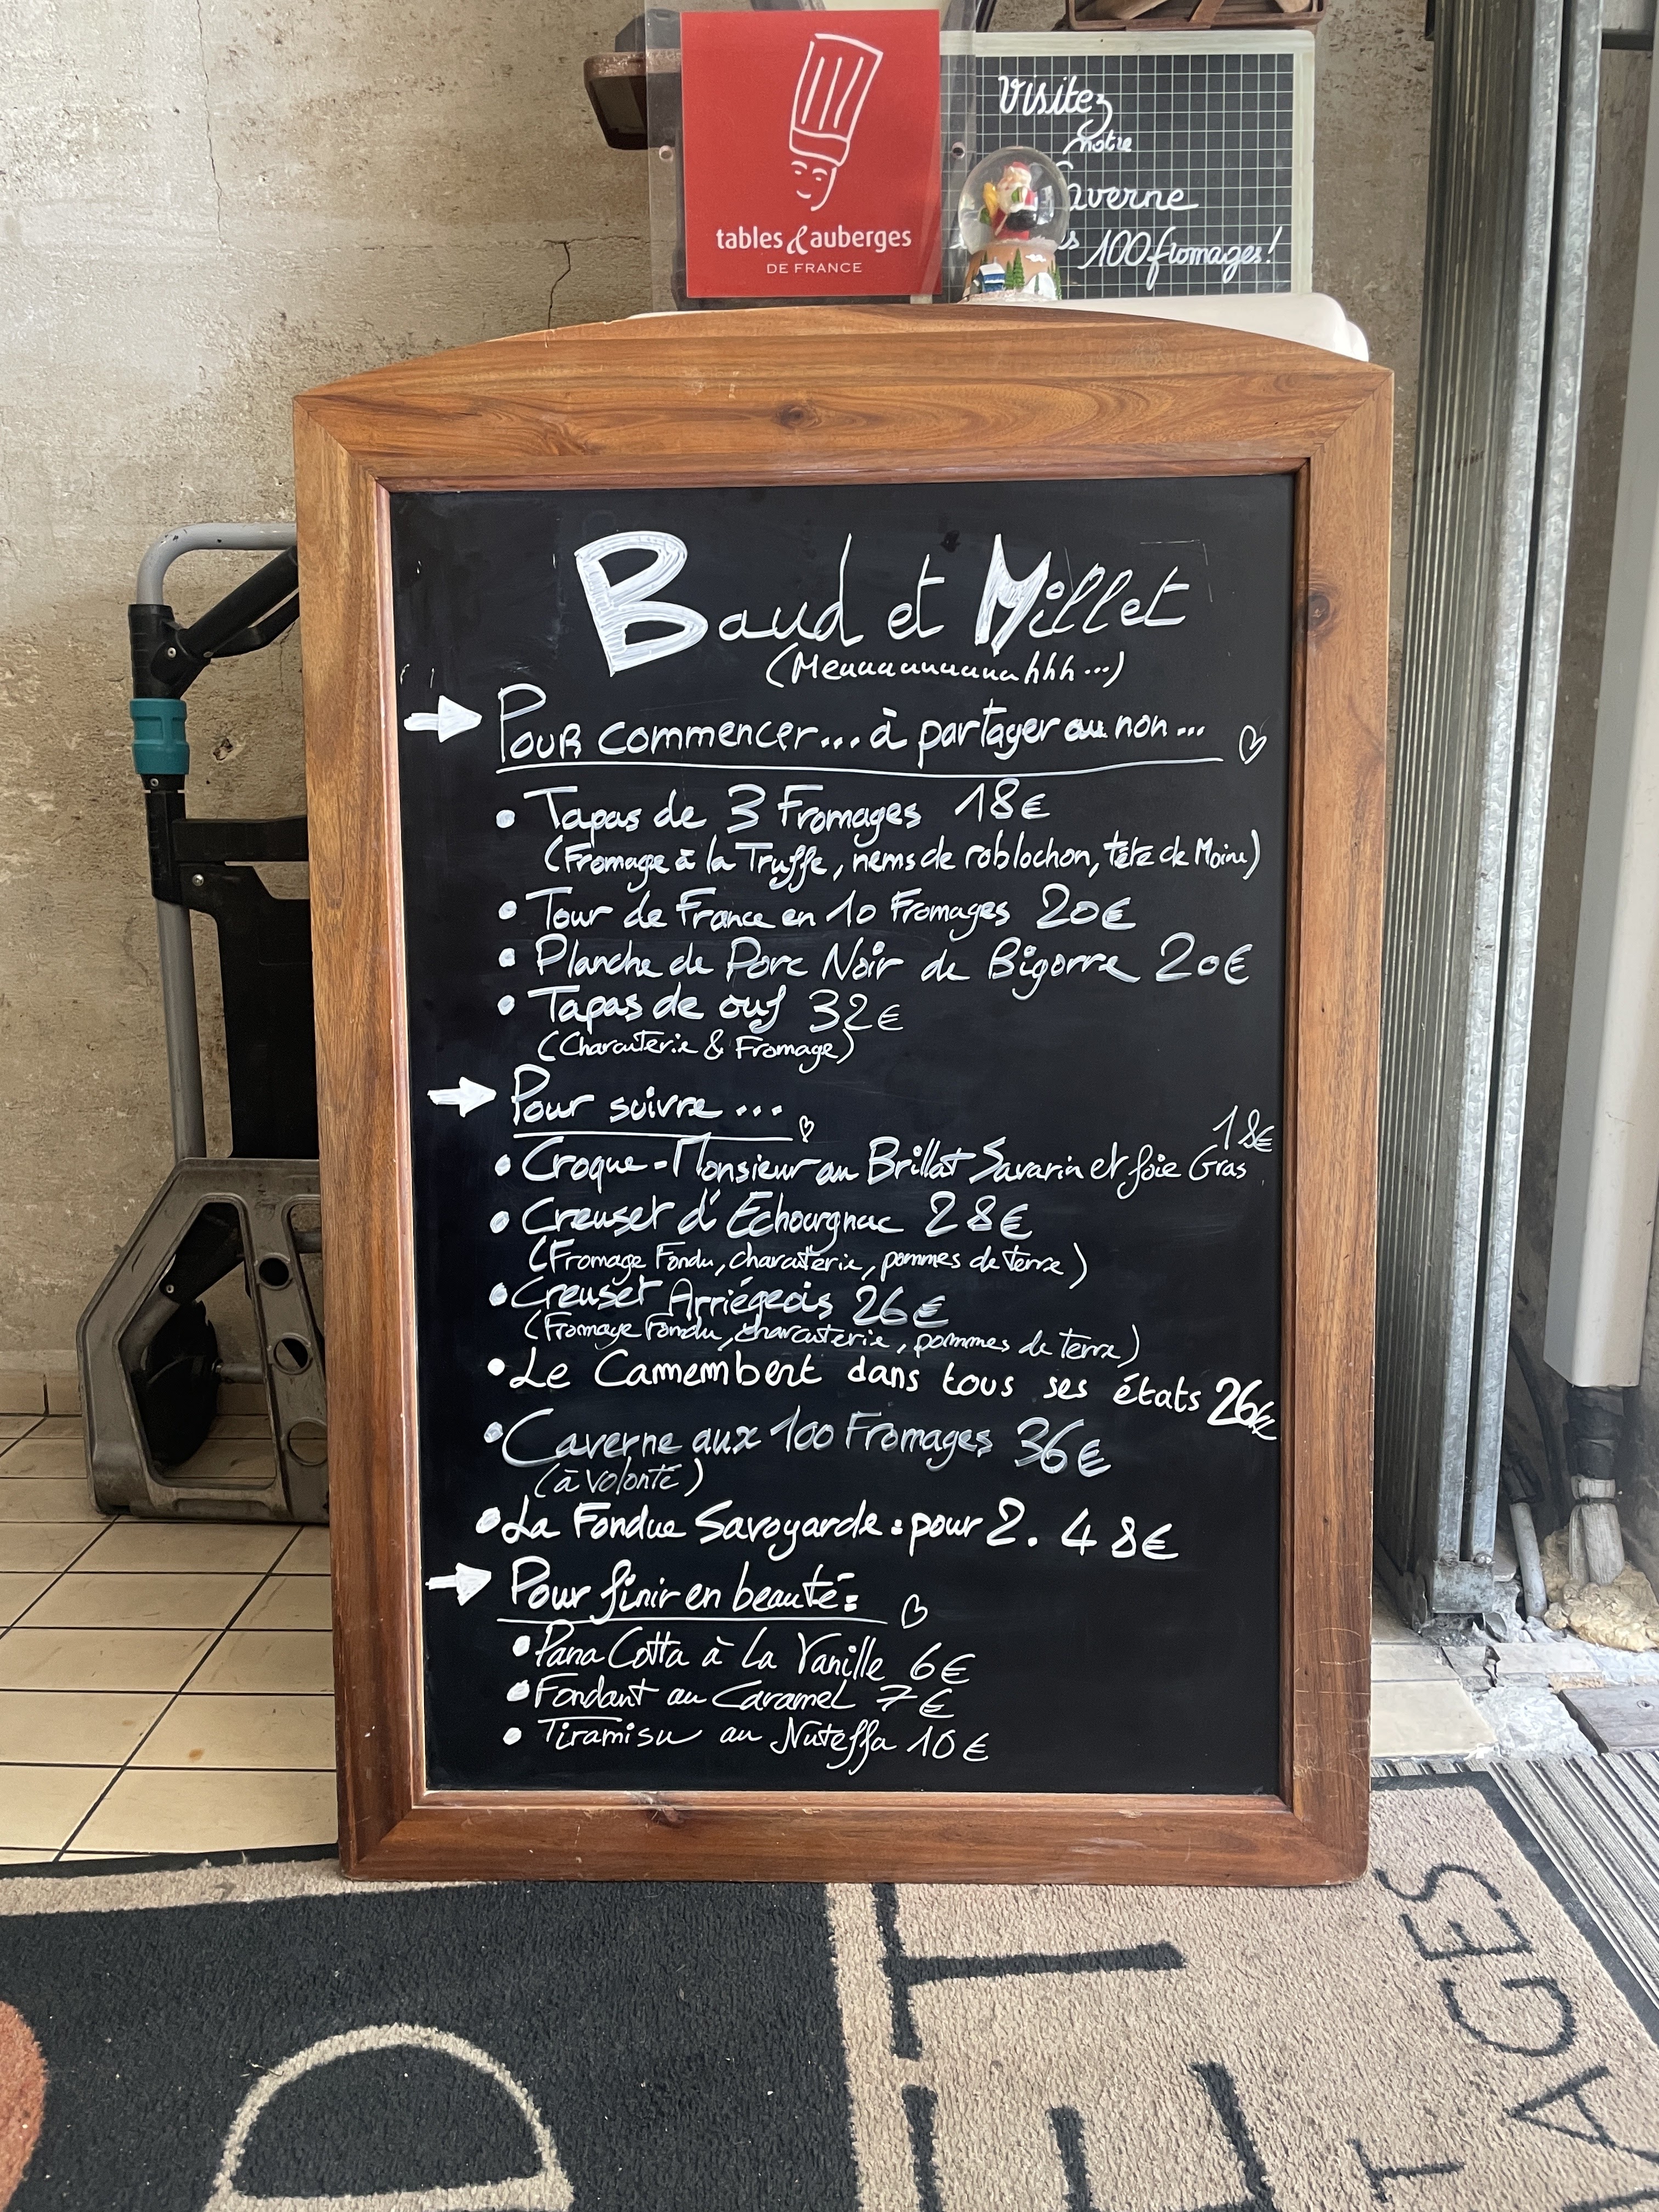 tables & auberges
DE FRANCE
Visitez
notre
averne
s 100 fromages!
Baud et Millet
(Meuuuuuuuuuhhh...)
Pour commencer... à partager ou non...
• Tapas de 3 Fromages 18€
(Fromage à la Truffe, nems de roblochon, tête de Moine)
• Tour de France en 10 Fromages 20€
• Planche de Porc Noir de Bigorre 20€
• Tapas de ouf 32€
(Charcuterie & Fromage)
Pour suivre ...
18€
• Croque-Monsieur au Brillat Savarin et foie Gras
• Creuset d'Echourgnac 28€
(Fromage Fondu, charcuterie, pommes de terre)
• Creuset Arriégeois 26€
(Fromage Fondu, charcuterie, pommes de terre)
• Le Camembert dans tous ses états 26€
• Caverne aux 100 Fromages 36€
(à volonté)
• La Fondue Savoyarde : pour 2. 48€
Pour finir en beauté :
• Pana Cotta à La Vanille 6€
• Fondant au Caramel 7€
• Tiramisu au Nutella 10€
D
ET
ET
AGES
TA